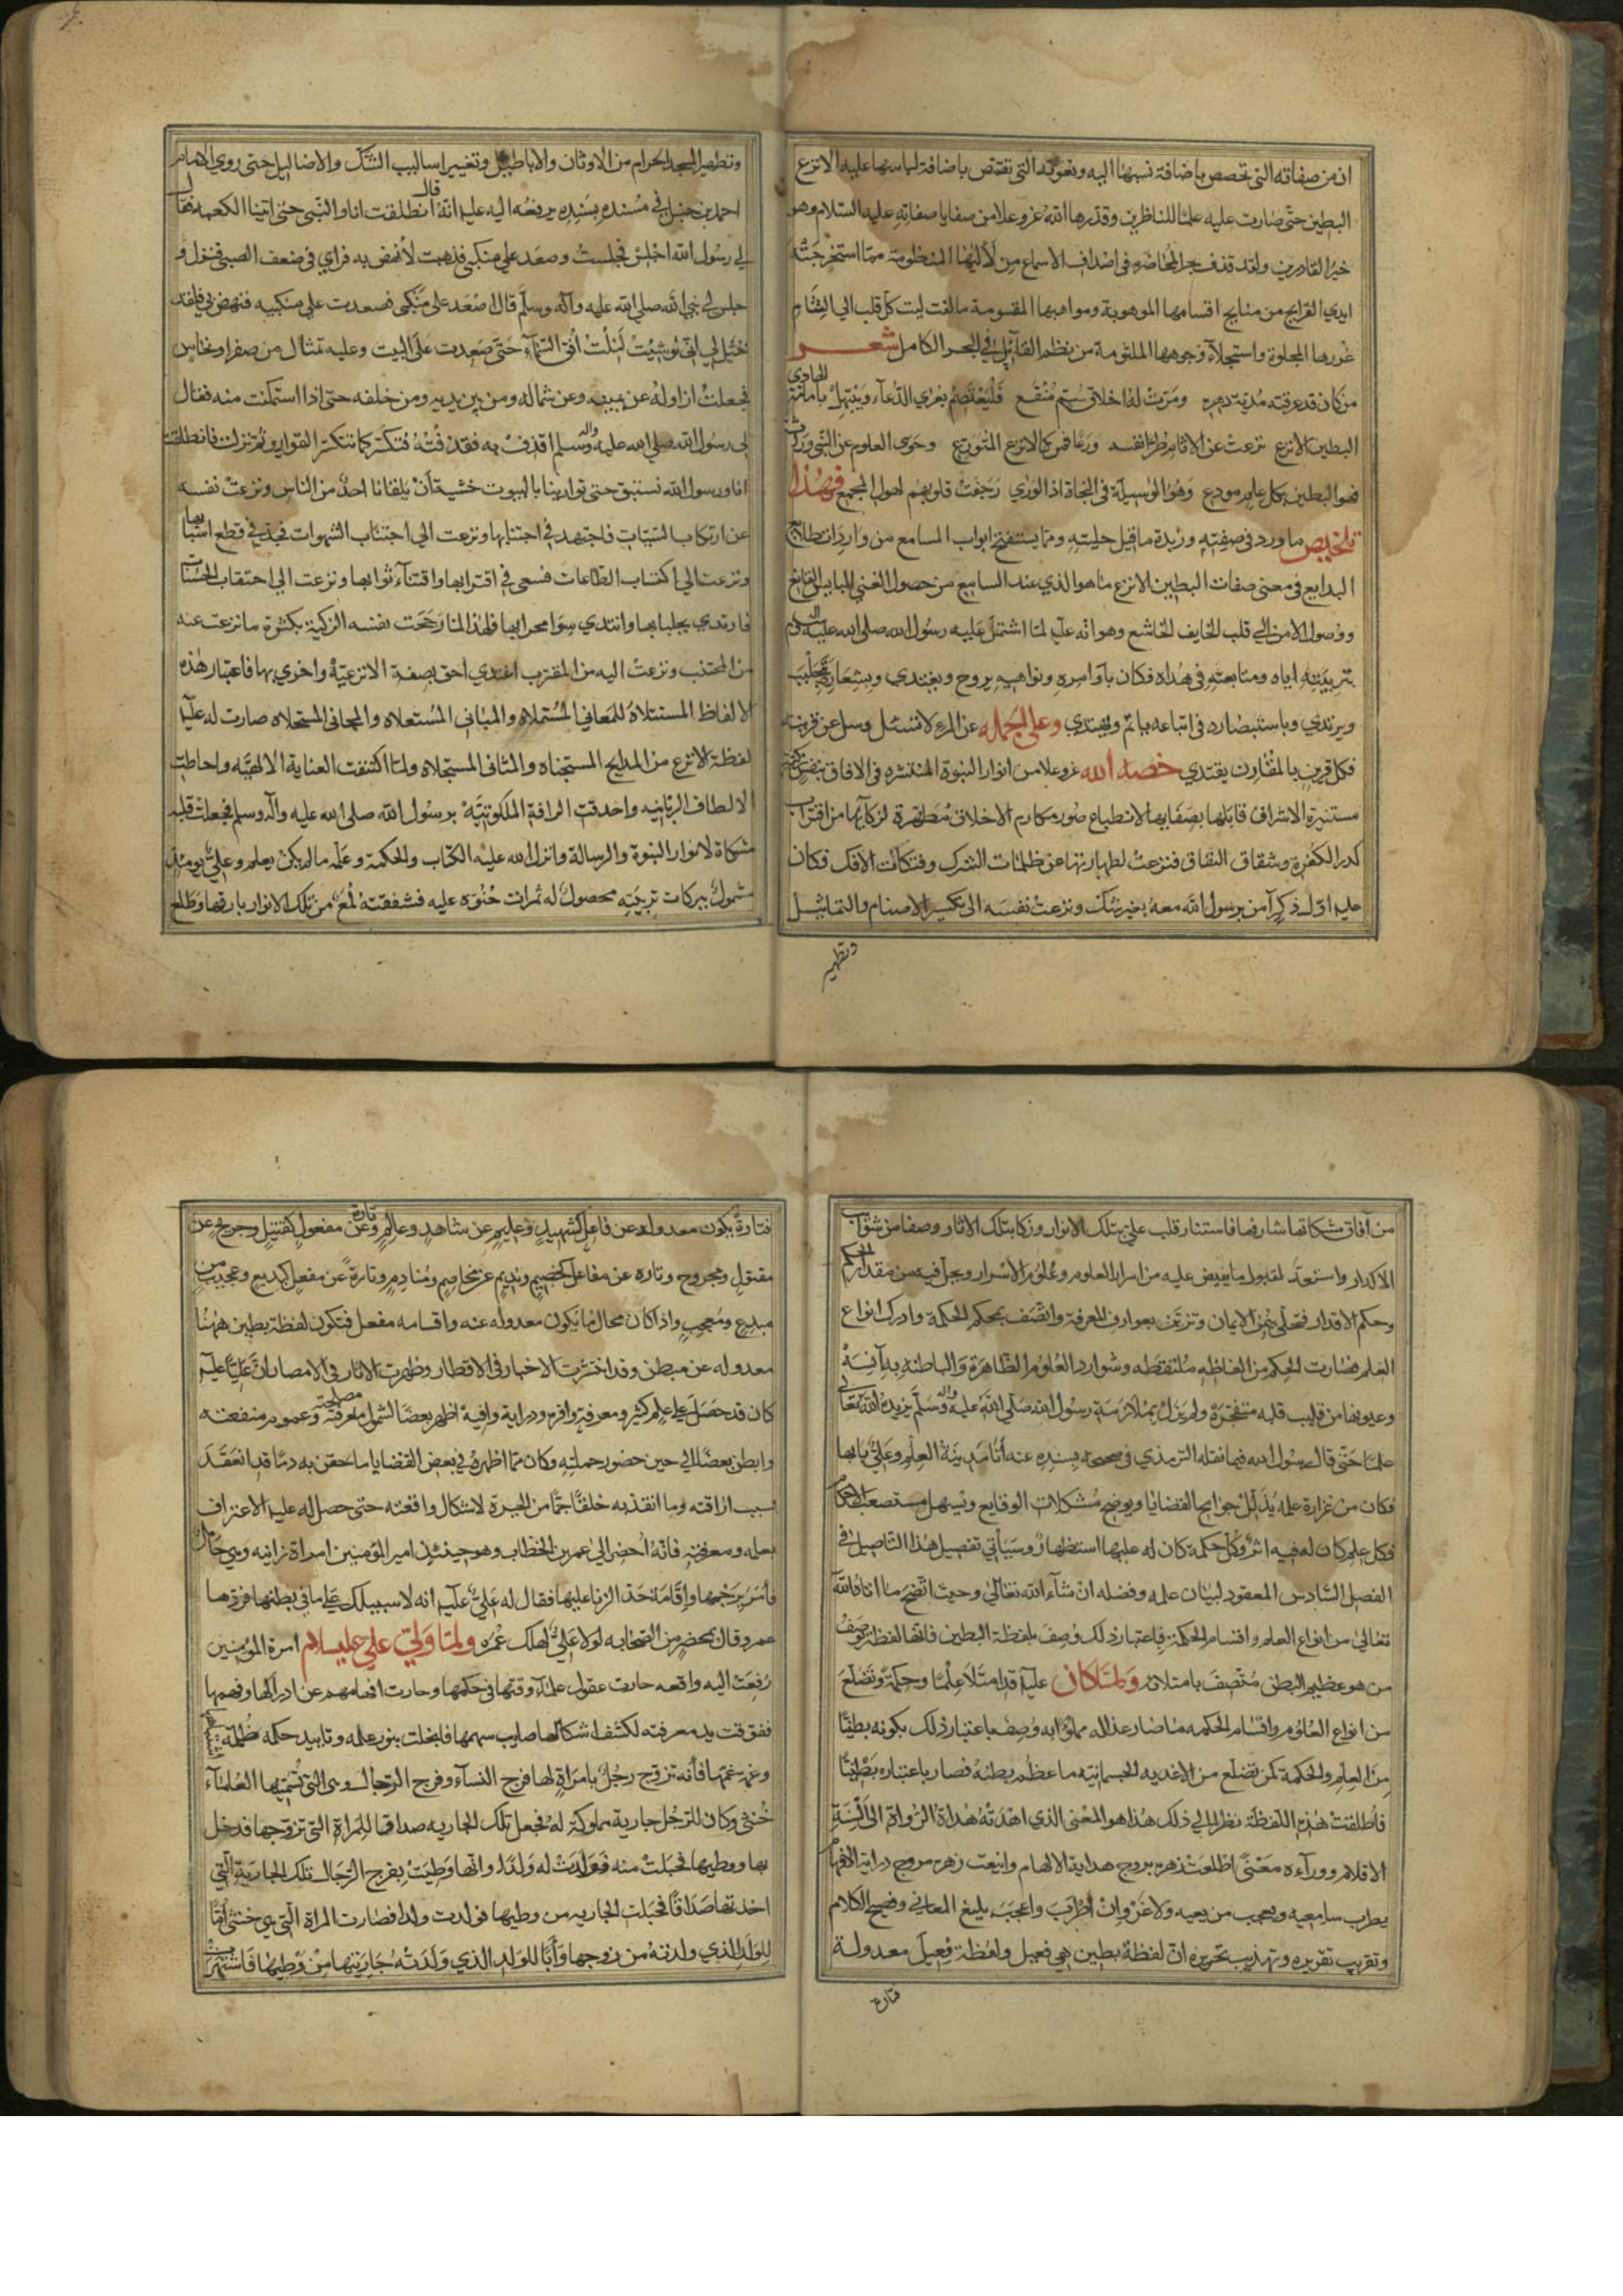 ان من صفاته التي تختص باضافة نسبها اليه ونعوته التي تقتص باضافة لباسها عليه الانزع
البطين حتى صارت عليه علما للناظرين وقدرها الله عز وعلا من سفايا صفاته عليه السلام وهو
خير القادرين ولقد قذف بحر المحاضره في اصداف الاسماع من لآليها المنظومة مما استخرجته
ايدي القرايح من منايح اقسامها الموهوبة ومواهبها المقسومة مالفت ليت كل قلب الي التثام
غررها المجلوة واستجلآء وجوهها الملثومة من نظم القائل في البحر الكامل شعر
من كان قد عرقته مدية دهره ومرت له اخلاق سم منقع فليعتصم بعري الدعآء ويبتهل بامامة الهادي
البطين الانزع نزعت عن الاثام طرا نفسه ورعا فمن كالانزع المتورع وحوي العلوم عن النبي وراثة
فهو البطين بكل علم مودع وهو الوسيلة في النجاة اذا الوري رجفت قلوبهم لهول المجمع فهذا
تلخيص ما ورد في صفته وزبدة ما قيل حليته ومما يستفتح ابواب المسامع من واردات طلايع
البدايع في معنى صفات البطين الانزع ما هو الذي عند السامع من حصول الغني للبايس القانع
ووصول الامن الي قلب الخايف الخاشع وهو انه عليه لما اشتمل عليه رسول الله صلى الله عليه واله وسلم
بتربيته اياه ومتابعته في هداه فكان باوامره ونواهيه يروح ويغتدي وبشعاره يتجلبب
ويرتدي وباستبصاره في اتباعه ياتم ويهتدي وعلى الجمله عن المرء لا تسئل وسل عن قرينه
فكل قرين بالمقارن يقتدي خصه الله عز وعلا من انوار النبوة المنتشره في الافاق بنفس زكية
مستنيرة الاشراف قابلها بصفايها لانطباع صور مكارم الاخلاق مطهرة لزكآيها من اقتراب
كدر الكفر وشقاق النفاق فنزعت لطهارتها عن ظلمات الشرك وفتكات الافك فكان
عليه اول ذكر آمن برسول الله معه بغير شك ونزعت نفسه الى تكسير الاصنام والتماثيل
وتطهير
وتطهير المسجد الحرام من الاوثان والاباطيل وتغيير اساليب الشك والاضاليل حتى روي الامام
احمد بن حنبل في مسنده بسنده يرفعه اليه عليه انه قال انطلقت انا والنبي حتى اتينا الكعبه فقال
لي رسول الله اجلس فجلست وصعد علي منكبي فذهبت لأنهض به فراي في ضعف الصبي فنزل و
جلس لي نبي الله صلى الله عليه وآله وسلم قال اصعد على منكبي فصعدت علي منكبيه فنهض بي فلقد
خيل لي اني لو شئت لنلت افق السمآء حتى صعدت على البيت وعليه تمثال من صفر او نحاس
فجعلت ازاوله عن يمينه وعن شماله ومن بين يديه ومن خلفه حتى اذا استمكنت منه فقال
لي رسول الله صلى الله عليه واله وسلم اقذف به فقذفته فتكسر كما تتكسر القوارير ثم نزلت فانطلقت
انا ورسول الله نستبق حتى توارينا بالبيوت خشية أن يلقانا احد من الناس ونزعت نفسه
عن ارتكاب السيئات فاجتهد في اجتنابها ونزعت الي اجتناب الشهوات فجد في قطع اسبابها
ونزعت الي اكتساب الطاعات فسعى في اقترابها واقتنآء ثوابها ونزعت الي احتقاب الحسنات
فارتدي بجلبابها وانتدي سوا محرابها فلهذا لما رجحت نفسه الزكية بكثرة ما نزعت عنه
من المجتنب ونزعت اليه من المقترب اغتدي احق بصفة الانزعية واحري بها فاعتبار هذه
الالفاظ المستتلاة للمعاني المستملاه والمباني المستعلاه والمجاني المستحلاه صارت له عليه
لفظة الانزع من المدايح المستجناه والمثاني المستجلاه ولما اكتنفت العناية الالهيه واحاطت
الالطاف الربانيه واحدقت الرافة الملكوتية برسول الله صلى الله عليه وآله وسلم فجعلت قلبه
مشكاة لانوار النبوة والرسالة وانزل الله عليه الكتاب والحكمة وعلمه ما لم يكن يعلم وعلي يومئذ
مشمول ببركات تربيته محصول له ثمرات حنوه عليه فشفقته لمع من تلك الانوار بارقها وطلع
من آفاق مشكاتها شارقها فاستنار قلب علي بتلك الانوار وزكا بتلك الاثار وصفا من شوايب
الاكدار واستعد لقبول ما يفيض عليه من اسرار العلوم وعلوم الاسرار وجل فيه من مقدار الحكم
وحكم الاقدار فتحلى بيمن الايمان وتزين بعوارف المعرفة واتصف بحكم الحكمة وادرك انواع
العلم فصارت الحكم من الفاظه ملتقطه وشوارد العلوم الظاهرة والباطنه به آنسة
وعيونها من قليب قلبه متفجرة ولم يزل بملازمة رسول الله صلى الله عليه واله وسلم يزيده الله تعالى
علما حتى قال رسول الله فيما نقله الترمذي في صحيحه بسنده عنه أنا مدينة العلم وعلي بابها
فكان من غزارة علمه يذلل جوامح القضايا ويوضح مشكلات الوقايع ويسهل مستصعب الاحكام
فكل علم كان له فيه اثر وكل حكمة كان له عليها استظهار وسيأتي تفصيل هذا التاصيل في
الفصل السادس المعقود لبيان علمه وفضله ان شآء الله تعالى وحيث اتضح ما اتاه الله
تعالى من انواع العلم واقسام الحكمة فباعتبار ذلك وصف بلفظة البطين فانها لفظة يوصف
من هو عظيم البطن متصف بامتلائه ولما كان عليه قد امتلآ علما وحكمة وتضلع
من انواع العلوم واقسام الحكمه ما صار غذا له مملوا به وصف باعتبار ذلك بكونه بطينا
من العلم والحكمة كمن تضلع من الاغديه الجسمانيه ما عظم بطنه فصار باعتباره بطينا
فأطلقت هذه اللفظة نظرا الي ذلك هذا هو المعنى الذي اهدته هداة الرواة الى ألسنة
الاقلام وورآءه معنى اطلعت زهره بروج هداية الالهام واينعت زهره مروج دراية الافهام
يطرب سامعيه ويعجب من يعيه ولا غرو ان أطرب واعجب بليغ المعاني وفصيح الكلام
وتقريب تقريره وتهذيب تحريره ان لفظة بطين هي فعيل ولفظة فعيل معدولة
فتارة
فتارة يكون معدوله عن فاعل كشهيد وعليم عن شاهد وعالم وتارة عن مفعول كقتيل وجريح عن
مقتول ومجروح وتاره عن مفاعل كخصيم ونديم عن مخاصم ومنادم وتارة عن مفعل كبديع وعجيب من
مبدع ومعجب واذا كان محال ما يكون معدوله عنه واقسامه مفعل فتكون لفظة بطين ههنا
معدوله عن مبطن وقد انتشرت الاخبار في الاقطار وظهرت الاثار في الامصار ان عليا عليه
كان قد حصل علي علم كثير ومعرفة وافره ودراية وافية اظهر بعضا لشمول مصلحة معرفته وعموم منفعته
وابطن بعضا الي حين حضور حملته وكان مما اظهره في بعض القضايا ما حقن به دما قد انعقد
سبب اراقته وما انقذ به خلقا جما من الحيرة لاشكال واقعته حتى حصل له عليه الاعتراف
بعلمه ومعرفته فانه أحضر الي عمر بن الخطاب وهو حينئذ امير المؤمنين امراة زانيه وهي حامل
فأمر برجمها وإقامة حد الزنا عليها فقال له علي عليه انه لا سبيل لك علي ما في بطنها فردها
عمر وقال بمحضر من الصحابه لولا علي لهلك عمر ولما ولي علي عليه سلام امرة المؤمنين
رفعت اليه واقعه حارت عقول علمآء وقتها في حكمها وحارت افهامهم عن ادراكها وفهمها
ففوقت يد معرفته لكشف اشكالها صايب سهمها فانجلت بنور علمه وتاييد حكمه ظلمة
وغمة غمها فأنه تزوج رجل بامراة لها فرج النسآء وفرج الرجال وهي التي تسميها العلمآء
خنثي وكان للرجل جارية مملوكة له فجعل تلك الجاريه صداقا للمراة التي تزوجها فدخل
بها ووطيها فحبلت منه فولدت له ولدا وانها وطيت بفرج الرجال تلك الجارية التي
اخذتها صداقا فحبلت الجاريه من وطيها فولدت ولدا فصارت المراة التي هي خنثى أما
للولد الذي ولدته من زوجها وأبا للولد الذي ولدته جاريتها من وطيها فاشتهرت